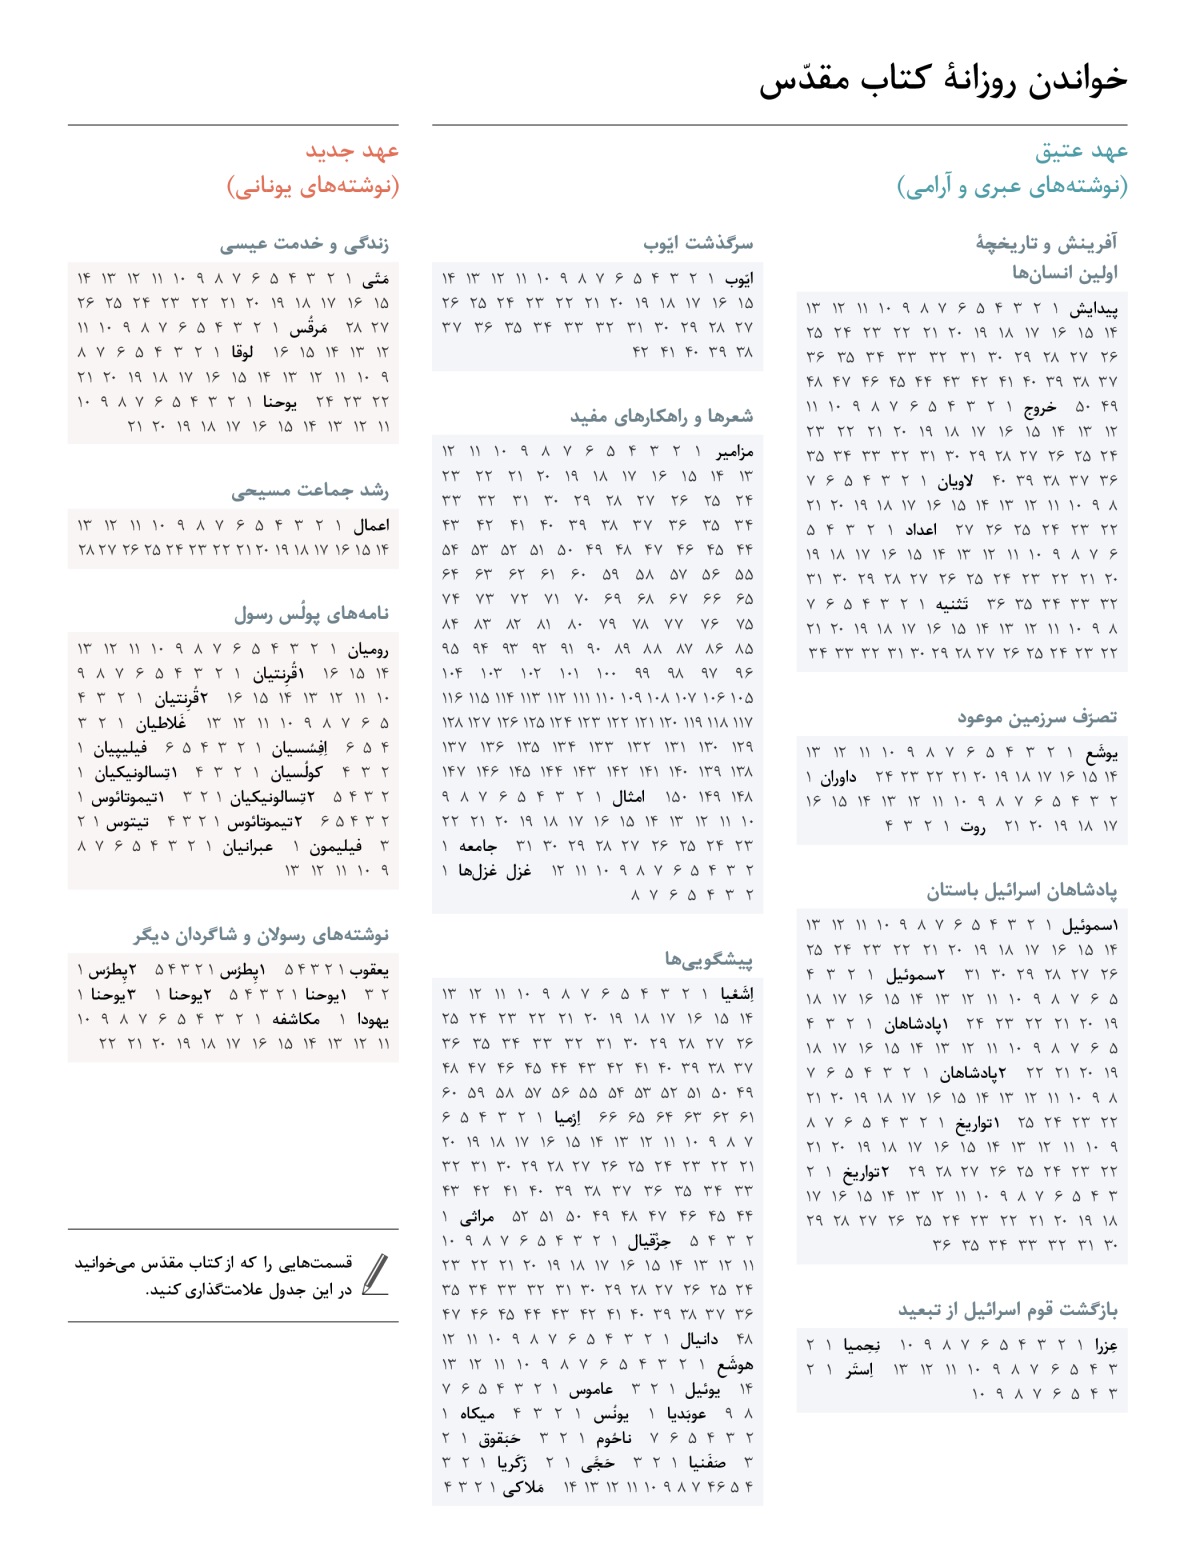 خواندن روزانهٔ کتاب مقدّس
عهد عتیق
(نوشته‌های عبری و آرامی)
آفرینش و تاریخچهٔ
اولین انسان‌ها
پیدایش ۱ ۲ ۳ ۴ ۵ ۶ ۷ ۸ ۹ ۱۰ ۱۱ ۱۲ ۱۳
۱۴ ۱۵ ۱۶ ۱۷ ۱۸ ۱۹ ۲۰ ۲۱ ۲۲ ۲۳ ۲۴ ۲۵
۲۶ ۲۷ ۲۸ ۲۹ ۳۰ ۳۱ ۳۲ ۳۳ ۳۴ ۳۵ ۳۶
۳۷ ۳۸ ۳۹ ۴۰ ۴۱ ۴۲ ۴۳ ۴۴ ۴۵ ۴۶ ۴۷ ۴۸
۴۹ ۵۰ خروج ۱ ۲ ۳ ۴ ۵ ۶ ۷ ۸ ۹ ۱۰ ۱۱
۱۲ ۱۳ ۱۴ ۱۵ ۱۶ ۱۷ ۱۸ ۱۹ ۲۰ ۲۱ ۲۲ ۲۳
۲۴ ۲۵ ۲۶ ۲۷ ۲۸ ۲۹ ۳۰ ۳۱ ۳۲ ۳۳ ۳۴ ۳۵
۳۶ ۳۷ ۳۸ ۳۹ ۴۰ لاویان ۱ ۲ ۳ ۴ ۵ ۶ ۷
۸ ۹ ۱۰ ۱۱ ۱۲ ۱۳ ۱۴ ۱۵ ۱۶ ۱۷ ۱۸ ۱۹ ۲۰ ۲۱
۲۲ ۲۳ ۲۴ ۲۵ ۲۶ ۲۷ اعداد ۱ ۲ ۳ ۴ ۵
۶ ۷ ۸ ۹ ۱۰ ۱۱ ۱۲ ۱۳ ۱۴ ۱۵ ۱۶ ۱۷ ۱۸ ۱۹
۲۰ ۲۱ ۲۲ ۲۳ ۲۴ ۲۵ ۲۶ ۲۷ ۲۸ ۲۹ ۳۰ ۳۱
۳۲ ۳۳ ۳۴ ۳۵ ۳۶ تَثنیه ۱ ۲ ۳ ۴ ۵ ۶ ۷
۸ ۹ ۱۰ ۱۱ ۱۲ ۱۳ ۱۴ ۱۵ ۱۶ ۱۷ ۱۸ ۱۹ ۲۰ ۲۱
۲۲ ۲۳ ۲۴ ۲۵ ۲۶ ۲۷ ۲۸ ۲۹ ۳۰ ۳۱ ۳۲ ۳۳ ۳۴
تصرّف سرزمین موعود
یوشَع ۱ ۲ ۳ ۴ ۵ ۶ ۷ ۸ ۹ ۱۰ ۱۱ ۱۲ ۱۳
۱۴ ۱۵ ۱۶ ۱۷ ۱۸ ۱۹ ۲۰ ۲۱ ۲۲ ۲۳ ۲۴ داوران ۱
۲ ۳ ۴ ۵ ۶ ۷ ۸ ۹ ۱۰ ۱۱ ۱۲ ۱۳ ۱۴ ۱۵ ۱۶
۱۷ ۱۸ ۱۹ ۲۰ ۲۱ روت ۱ ۲ ۳ ۴
پادشاهان اسرائیل باستان
۱سموئیل ۱ ۲ ۳ ۴ ۵ ۶ ۷ ۸ ۹ ۱۰ ۱۱ ۱۲ ۱۳
۱۴ ۱۵ ۱۶ ۱۷ ۱۸ ۱۹ ۲۰ ۲۱ ۲۲ ۲۳ ۲۴ ۲۵
۲۶ ۲۷ ۲۸ ۲۹ ۳۰ ۳۱ ۲سموئیل ۱ ۲ ۳ ۴
۵ ۶ ۷ ۸ ۹ ۱۰ ۱۱ ۱۲ ۱۳ ۱۴ ۱۵ ۱۶ ۱۷ ۱۸
۱۹ ۲۰ ۲۱ ۲۲ ۲۳ ۲۴ ۱پادشاهان ۱ ۲ ۳ ۴
۵ ۶ ۷ ۸ ۹ ۱۰ ۱۱ ۱۲ ۱۳ ۱۴ ۱۵ ۱۶ ۱۷ ۱۸
۱۹ ۲۰ ۲۱ ۲۲ ۲پادشاهان ۱ ۲ ۳ ۴ ۵ ۶ ۷
۸ ۹ ۱۰ ۱۱ ۱۲ ۱۳ ۱۴ ۱۵ ۱۶ ۱۷ ۱۸ ۱۹ ۲۰ ۲۱
۲۲ ۲۳ ۲۴ ۲۵ ۱تواریخ ۱ ۲ ۳ ۴ ۵ ۶ ۷ ۸
۹ ۱۰ ۱۱ ۱۲ ۱۳ ۱۴ ۱۵ ۱۶ ۱۷ ۱۸ ۱۹ ۲۰ ۲۱
۲۲ ۲۳ ۲۴ ۲۵ ۲۶ ۲۷ ۲۸ ۲۹ ۲تواریخ ۱ ۲
۳ ۴ ۵ ۶ ۷ ۸ ۹ ۱۰ ۱۱ ۱۲ ۱۳ ۱۴ ۱۵ ۱۶ ۱۷
۱۸ ۱۹ ۲۰ ۲۱ ۲۲ ۲۳ ۲۴ ۲۵ ۲۶ ۲۷ ۲۸ ۲۹
۳۰ ۳۱ ۳۲ ۳۳ ۳۴ ۳۵ ۳۶
بازگشت قوم اسرائیل از تبعید
عِزرا ۱ ۲ ۳ ۴ ۵ ۶ ۷ ۸ ۹ ۱۰ نِحِمیا ۱ ۲
۳ ۴ ۵ ۶ ۷ ۸ ۹ ۱۰ ۱۱ ۱۲ ۱۳ اِستَر ۱ ۲
۳ ۴ ۵ ۶ ۷ ۸ ۹ ۱۰
سرگذشت ایّوب
ایّوب ۱ ۲ ۳ ۴ ۵ ۶ ۷ ۸ ۹ ۱۰ ۱۱ ۱۲ ۱۳ ۱۴
۱۵ ۱۶ ۱۷ ۱۸ ۱۹ ۲۰ ۲۱ ۲۲ ۲۳ ۲۴ ۲۵ ۲۶
۲۷ ۲۸ ۲۹ ۳۰ ۳۱ ۳۲ ۳۳ ۳۴ ۳۵ ۳۶ ۳۷
۳۸ ۳۹ ۴۰ ۴۱ ۴۲
شعرها و راهکارهای مفید
مزامیر ۱ ۲ ۳ ۴ ۵ ۶ ۷ ۸ ۹ ۱۰ ۱۱ ۱۲
۱۳ ۱۴ ۱۵ ۱۶ ۱۷ ۱۸ ۱۹ ۲۰ ۲۱ ۲۲ ۲۳
۲۴ ۲۵ ۲۶ ۲۷ ۲۸ ۲۹ ۳۰ ۳۱ ۳۲ ۳۳
۳۴ ۳۵ ۳۶ ۳۷ ۳۸ ۳۹ ۴۰ ۴۱ ۴۲ ۴۳
۴۴ ۴۵ ۴۶ ۴۷ ۴۸ ۴۹ ۵۰ ۵۱ ۵۲ ۵۳ ۵۴
۵۵ ۵۶ ۵۷ ۵۸ ۵۹ ۶۰ ۶۱ ۶۲ ۶۳ ۶۴
۶۵ ۶۶ ۶۷ ۶۸ ۶۹ ۷۰ ۷۱ ۷۲ ۷۳ ۷۴
۷۵ ۷۶ ۷۷ ۷۸ ۷۹ ۸۰ ۸۱ ۸۲ ۸۳ ۸۴
۸۵ ۸۶ ۸۷ ۸۸ ۸۹ ۹۰ ۹۱ ۹۲ ۹۳ ۹۴ ۹۵
۹۶ ۹۷ ۹۸ ۹۹ ۱۰۰ ۱۰۱ ۱۰۲ ۱۰۳ ۱۰۴
۱۰۵ ۱۰۶ ۱۰۷ ۱۰۸ ۱۰۹ ۱۱۰ ۱۱۱ ۱۱۲ ۱۱۳ ۱۱۴ ۱۱۵ ۱۱۶
۱۱۷ ۱۱۸ ۱۱۹ ۱۲۰ ۱۲۱ ۱۲۲ ۱۲۳ ۱۲۴ ۱۲۵ ۱۲۶ ۱۲۷ ۱۲۸
۱۲۹ ۱۳۰ ۱۳۱ ۱۳۲ ۱۳۳ ۱۳۴ ۱۳۵ ۱۳۶ ۱۳۷
۱۳۸ ۱۳۹ ۱۴۰ ۱۴۱ ۱۴۲ ۱۴۳ ۱۴۴ ۱۴۵ ۱۴۶ ۱۴۷
۱۴۸ ۱۴۹ ۱۵۰ امثال ۱ ۲ ۳ ۴ ۵ ۶ ۷ ۸ ۹
۱۰ ۱۱ ۱۲ ۱۳ ۱۴ ۱۵ ۱۶ ۱۷ ۱۸ ۱۹ ۲۰ ۲۱ ۲۲
۲۳ ۲۴ ۲۵ ۲۶ ۲۷ ۲۸ ۲۹ ۳۰ ۳۱ جامعه ۱
۲ ۳ ۴ ۵ ۶ ۷ ۸ ۹ ۱۰ ۱۱ ۱۲ غزل غزل‌ها ۱
۲ ۳ ۴ ۵ ۶ ۷ ۸
پیشگویی‌ها
اِشَعْیا ۱ ۲ ۳ ۴ ۵ ۶ ۷ ۸ ۹ ۱۰ ۱۱ ۱۲ ۱۳
۱۴ ۱۵ ۱۶ ۱۷ ۱۸ ۱۹ ۲۰ ۲۱ ۲۲ ۲۳ ۲۴ ۲۵
۲۶ ۲۷ ۲۸ ۲۹ ۳۰ ۳۱ ۳۲ ۳۳ ۳۴ ۳۵ ۳۶
۳۷ ۳۸ ۳۹ ۴۰ ۴۱ ۴۲ ۴۳ ۴۴ ۴۵ ۴۶ ۴۷ ۴۸
۴۹ ۵۰ ۵۱ ۵۲ ۵۳ ۵۴ ۵۵ ۵۶ ۵۷ ۵۸ ۵۹ ۶۰
۶۱ ۶۲ ۶۳ ۶۴ ۶۵ ۶۶ اِرْمیا ۱ ۲ ۳ ۴ ۵ ۶
۷ ۸ ۹ ۱۰ ۱۱ ۱۲ ۱۳ ۱۴ ۱۵ ۱۶ ۱۷ ۱۸ ۱۹ ۲۰
۲۱ ۲۲ ۲۳ ۲۴ ۲۵ ۲۶ ۲۷ ۲۸ ۲۹ ۳۰ ۳۱ ۳۲
۳۳ ۳۴ ۳۵ ۳۶ ۳۷ ۳۸ ۳۹ ۴۰ ۴۱ ۴۲ ۴۳
۴۴ ۴۵ ۴۶ ۴۷ ۴۸ ۴۹ ۵۰ ۵۱ ۵۲ مراثی ۱
۲ ۳ ۴ ۵ حِزْقیال ۱ ۲ ۳ ۴ ۵ ۶ ۷ ۸ ۹ ۱۰
۱۱ ۱۲ ۱۳ ۱۴ ۱۵ ۱۶ ۱۷ ۱۸ ۱۹ ۲۰ ۲۱ ۲۲ ۲۳
۲۴ ۲۵ ۲۶ ۲۷ ۲۸ ۲۹ ۳۰ ۳۱ ۳۲ ۳۳ ۳۴ ۳۵
۳۶ ۳۷ ۳۸ ۳۹ ۴۰ ۴۱ ۴۲ ۴۳ ۴۴ ۴۵ ۴۶ ۴۷
۴۸ دانیال ۱ ۲ ۳ ۴ ۵ ۶ ۷ ۸ ۹ ۱۰ ۱۱ ۱۲
هوشَع ۱ ۲ ۳ ۴ ۵ ۶ ۷ ۸ ۹ ۱۰ ۱۱ ۱۲ ۱۳
۱۴ یوئیل ۱ ۲ ۳ عاموس ۱ ۲ ۳ ۴ ۵ ۶ ۷
۸ ۹ عوبَدیا ۱ یونُس ۱ ۲ ۳ ۴ میکاه ۱
۲ ۳ ۴ ۵ ۶ ۷ ناحُوم ۱ ۲ ۳ حَبَقوق ۱ ۲
۳ صَفَنیا ۱ ۲ ۳ حَجَّی ۱ ۲ زَکَریا ۱ ۲ ۳
۴ ۵ ۶ ۷ ۸ ۹ ۱۰ ۱۱ ۱۲ ۱۳ ۱۴ مَلاکی ۱ ۲ ۳ ۴
عهد جدید
(نوشته‌های یونانی)
زندگی و خدمت عیسی
مَتّی ۱ ۲ ۳ ۴ ۵ ۶ ۷ ۸ ۹ ۱۰ ۱۱ ۱۲ ۱۳ ۱۴
۱۵ ۱۶ ۱۷ ۱۸ ۱۹ ۲۰ ۲۱ ۲۲ ۲۳ ۲۴ ۲۵ ۲۶
۲۷ ۲۸ مَرقُس ۱ ۲ ۳ ۴ ۵ ۶ ۷ ۸ ۹ ۱۰ ۱۱
۱۲ ۱۳ ۱۴ ۱۵ ۱۶ لوقا ۱ ۲ ۳ ۴ ۵ ۶ ۷ ۸
۹ ۱۰ ۱۱ ۱۲ ۱۳ ۱۴ ۱۵ ۱۶ ۱۷ ۱۸ ۱۹ ۲۰ ۲۱
۲۲ ۲۳ ۲۴ یوحنا ۱ ۲ ۳ ۴ ۵ ۶ ۷ ۸ ۹ ۱۰
۱۱ ۱۲ ۱۳ ۱۴ ۱۵ ۱۶ ۱۷ ۱۸ ۱۹ ۲۰ ۲۱
رشد جماعت مسیحی
اعمال ۱ ۲ ۳ ۴ ۵ ۶ ۷ ۸ ۹ ۱۰ ۱۱ ۱۲ ۱۳
۱۴ ۱۵ ۱۶ ۱۷ ۱۸ ۱۹ ۲۰ ۲۱ ۲۲ ۲۳ ۲۴ ۲۵ ۲۶ ۲۷ ۲۸
نامه‌های پولُس رسول
رومیان ۱ ۲ ۳ ۴ ۵ ۶ ۷ ۸ ۹ ۱۰ ۱۱ ۱۲ ۱۳
۱۴ ۱۵ ۱۶ ۱قُرِنتیان ۱ ۲ ۳ ۴ ۵ ۶ ۷ ۸ ۹
۱۰ ۱۱ ۱۲ ۱۳ ۱۴ ۱۵ ۱۶ ۲قُرِنتیان ۱ ۲ ۳ ۴
۵ ۶ ۷ ۸ ۹ ۱۰ ۱۱ ۱۲ ۱۳ غَلاطیان ۱ ۲ ۳
۴ ۵ ۶ اِفِسُسیان ۱ ۲ ۳ ۴ ۵ ۶ فیلیپیان ۱
۲ ۳ ۴ کولُسیان ۱ ۲ ۳ ۴ ۱تِسالونیکیان ۱
۲ ۳ ۴ ۵ ۲تِسالونیکیان ۱ ۲ ۳ ۱تیموتائوس ۱
۲ ۳ ۴ ۵ ۶ ۲تیموتائوس ۱ ۲ ۳ ۴ تیتوس ۱ ۲
۳ فیلیمون ۱ عبرانیان ۱ ۲ ۳ ۴ ۵ ۶ ۷ ۸
۹ ۱۰ ۱۱ ۱۲ ۱۳
نوشته‌های رسولان و شاگردان دیگر
یعقوب ۱ ۲ ۳ ۴ ۵ ۱پِطرُس ۱ ۲ ۳ ۴ ۵ ۲پِطرُس ۱
۲ ۳ ۱یوحنا ۱ ۲ ۳ ۴ ۵ ۲یوحنا ۱ ۳یوحنا ۱
یهودا ۱ مکاشفه ۱ ۲ ۳ ۴ ۵ ۶ ۷ ۸ ۹ ۱۰
۱۱ ۱۲ ۱۳ ۱۴ ۱۵ ۱۶ ۱۷ ۱۸ ۱۹ ۲۰ ۲۱ ۲۲
قسمت‌هایی را که از کتاب مقدّس می‌خوانید
در این جدول علامت‌گذاری کنید.